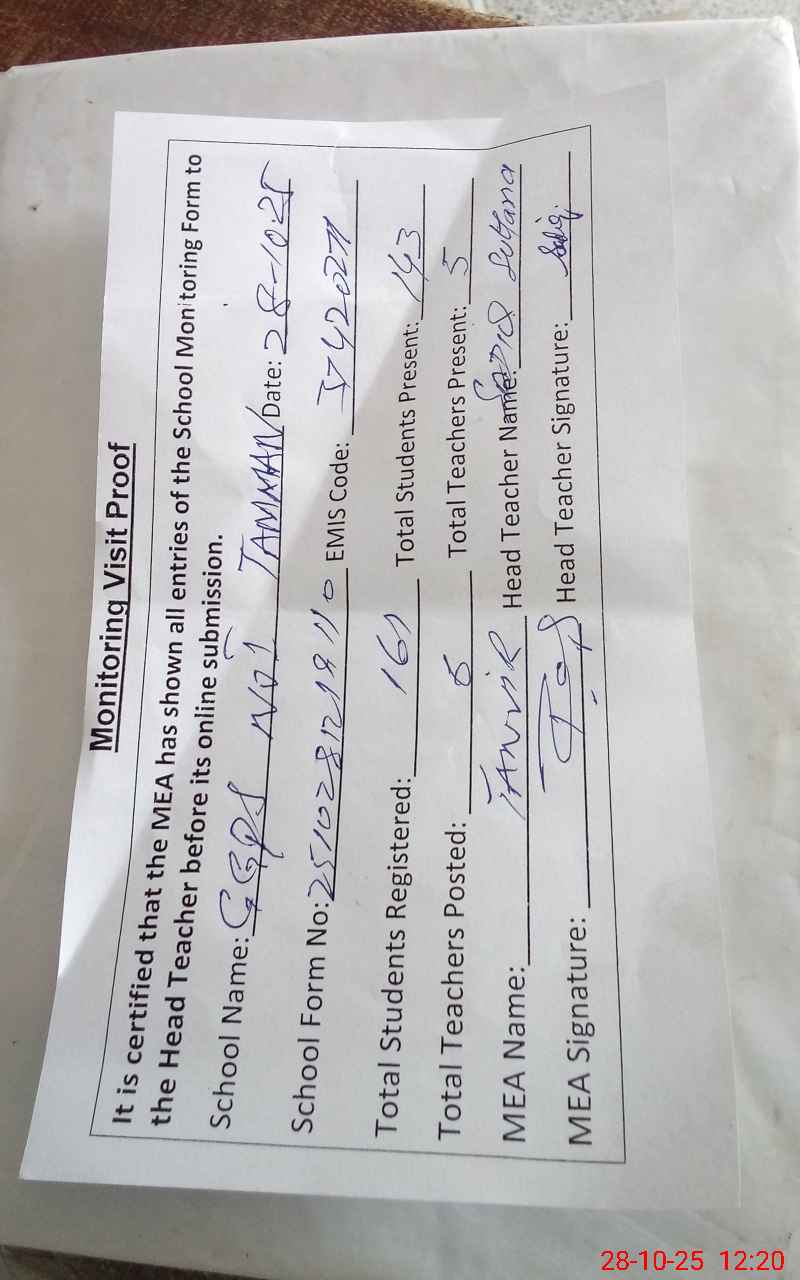 Monitoring Visit Proof
It is certified that the MEA has shown all entries of the School Monitoring Form to
the Head Teacher before its online submission.
School Name: GGPS NO1 TAMMAN Date: 28-10-25
School Form No: EMIS Code:
Total Students Registered: 161 Total Students Present: 143
Total Teachers Posted: Total Teachers Present: 5
MEA Name: TANVIR Head Teacher Name: Sultana
MEA Signature: Head Teacher Signature:
28-10-25 12:20